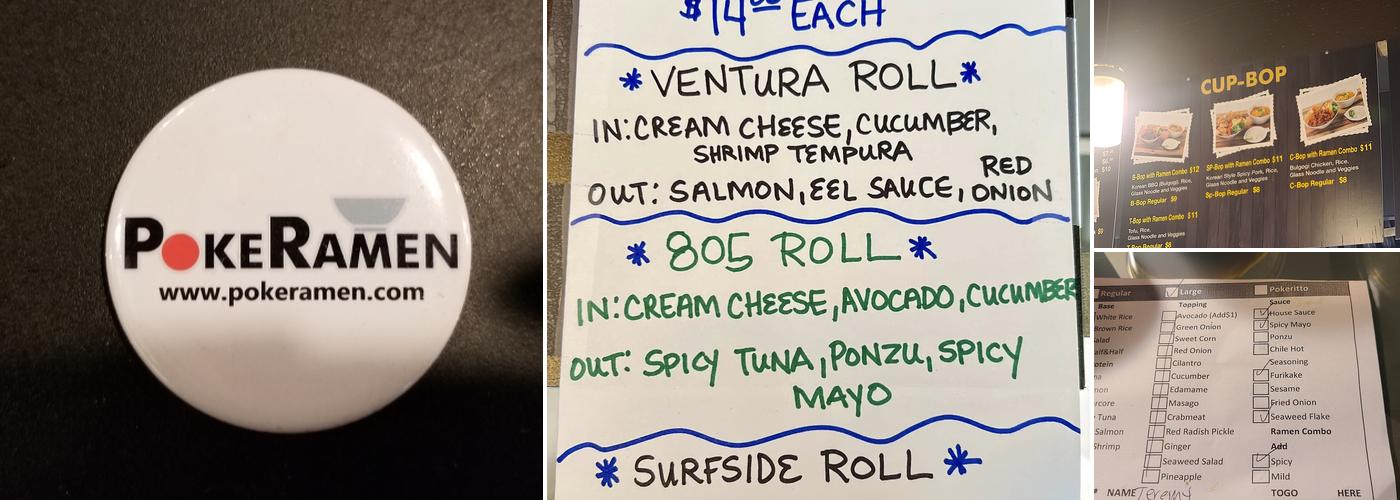 POKERAMEN
www.pokeramen.com
$14.00 EACH
*VENTURA ROLL*
IN: CREAM CHEESE, CUCUMBER,
SHRIMP TEMPURA
OUT: SALMON, EEL SAUCE, RED ONION
* 805 ROLL *
IN: CREAM CHEESE, AVOCADO, CUCUMBER
OUT: SPICY TUNA, PONZU, SPICY
MAYO
* SURFSIDE ROLL *
CUP-BOP
B-Bop with Ramen Combo $12
Korean BBQ (Bulgogi), Rice,
Glass Noodle and Veggies
B-Bop Regular $9
T-Bop with Ramen Combo $11
Tofu, Rice,
Glass Noodle and Veggies
T-Bop Regular $8
SP-Bop with Ramen Combo $11
Korean Style Spicy Pork, Rice,
Glass Noodle and Veggies
Sp-Bop Regular $8
C-Bop with Ramen Combo $11
Bulgogi Chicken, Rice,
Glass Noodle and Veggies
C-Bop Regular $8
Regular
Base
White Rice
Brown Rice
Salad
Half&Half
Tuna
Salmon
Shrimp
Large
Topping
Avocado (Add$1)
Green Onion
Sweet Corn
Red Onion
Cilantro
Cucumber
Edamame
Masago
Crabmeat
Red Radish Pickle
Ginger
Seaweed Salad
Pineapple
Pokeritto
Sauce
House Sauce
Spicy Mayo
Ponzu
Chile Hot
Seasoning
Furikake
Sesame
Fried Onion
Seaweed Flake
Ramen Combo
Add
Spicy
Mild
NAME Jeremy
TOGO HERE